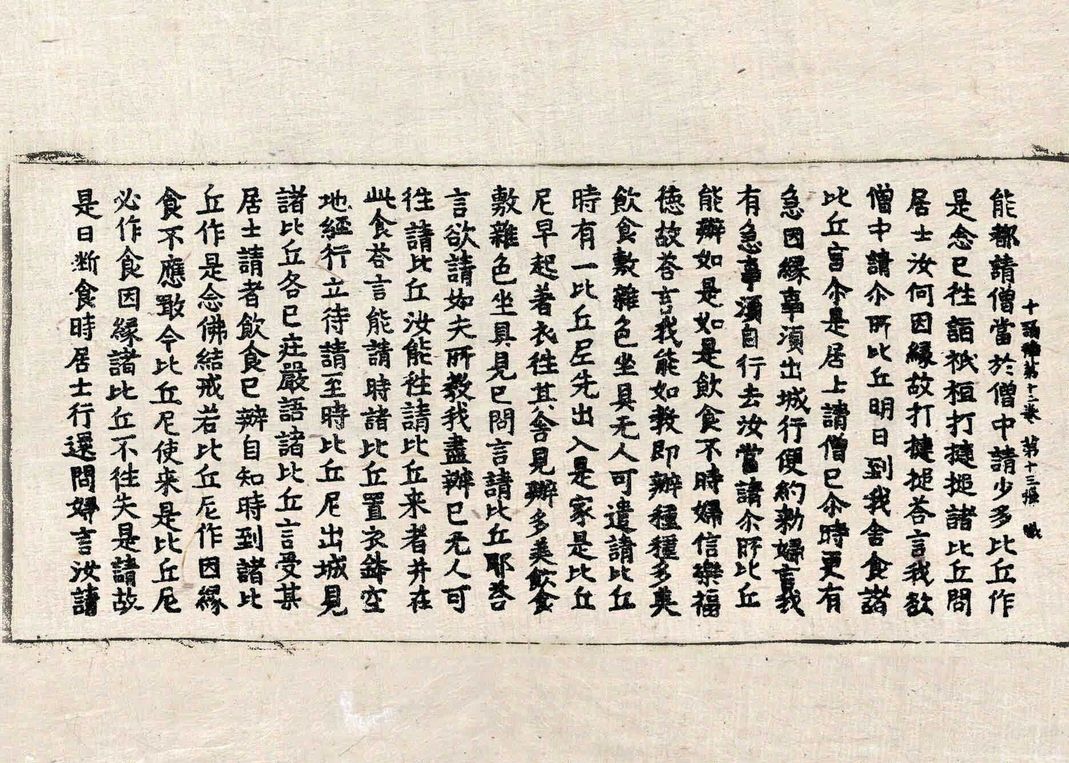 能都請僧當於僧中請少多比丘作
是念已往詣祇桓打揵搥諸比丘問
居士汝何因緣故打揵搥荅言我欲
僧中請尒所比丘明日到我舍食諸
比丘言尒是居士請僧已尒時更有
急因緣事湏出城行便約勑婦言我
有急事湏自行去汝當請尒所比丘
能辦如是如是飲食不時婦信樂福
德故荅言我能如教即辦種種多美
飲食敷雜色坐具无人可遣請比丘
時有一比丘尼先出入是家是比丘
尼早起著衣往其舍見辦多美飲食
敷雜色坐具見已問言請比丘耶荅
言欲請如夫所教我盡辦已无人可
往請比丘汝能往請比丘来者并在
此食荅言能請時諸比丘置衣鉢空
地經行立待請至時比丘尼出城見
諸比丘各已庄嚴語諸比丘言受某
居士請者飲食已辦自知時到諸比
丘作是念佛結戒若比丘尼作因緣
食不應噉今比丘尼使来是比丘尼
必作食因緣諸比丘不往失是請故
是日断食時居士行還問婦言汝請
十誦律第十三卷 第十三張